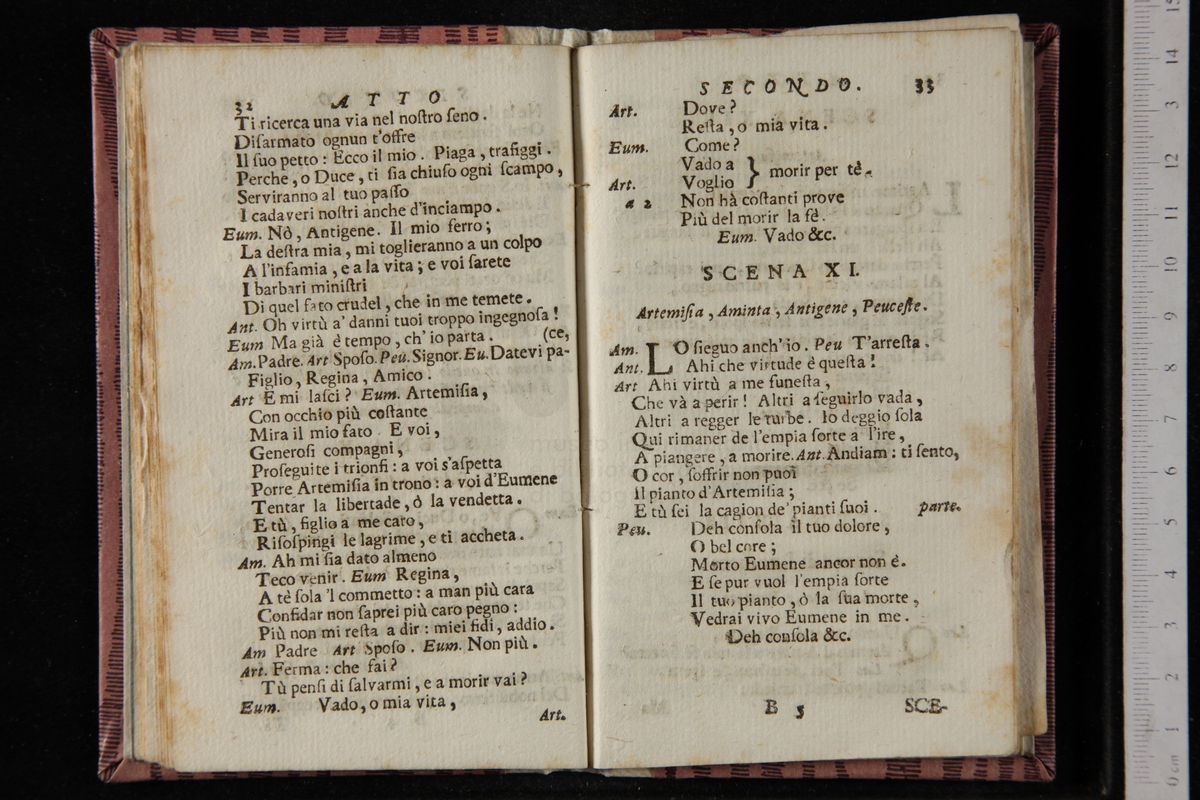 32 ATTO
Ti ricerca una via nel noſtro ſeno.
Diſarmato ognun t'offre
Il ſuo petto: Ecco il mio. Piaga, trafiggi.
Perche, o Duce, ti ſia chiuſo ogni ſcampo,
Serviranno al tuo paſſo
I cadaveri noſtri anche d'inciampo.
Eum. Nò, Antigene. Il mio ferro;
La deſtra mia, mi toglieranno a un colpo
A l'infamia, e a la vita; e voi ſarete
I barbari miniſtri
Di quel fato crudel, che in me temete.
Ant. Oh virtù a' danni tuoi troppo ingegnoſa!
Eum Ma già è tempo, ch'io parta. (ce,
Am. Padre. Art Spoſo. Peu. Signor. Eu. Datevi pa-
Figlio, Regina, Amico.
Art E mi laſci? Eum. Artemiſia,
Con occhio più coſtante
Mira il mio fato E voi,
Generoſi compagni,
Proſeguite i trionfi: a voi s'aſpetta
Porre Artemiſia in trono: a voi d'Eumene
Tentar la libertade, ò la vendetta.
E tù, figlio a me caro,
Riſoſpingi le lagrime, e ti accheta.
Am. Ah mi ſia dato almeno
Teco venir. Eum Regina,
A tè ſola 'l commetto: a man più cara
Confidar non ſaprei più caro pegno:
Più non mi reſta a dir: miei fidi, addio.
Am Padre Art Spoſo. Eum. Non più.
Art. Ferma: che fai?
Tù penſi di ſalvarmi, e a morir vai?
Eum. Vado, o mia vita,
Art.
SECONDO. 33
Art. Dove?
Reſta, o mia vita.
Eum. Come?
Vado a } morir per tè.
Art. Voglio
a 2 Non hà coſtanti prove
Più del morir la fè.
Eum. Vado &c.
SCENA XI.
Artemiſia, Aminta, Antigene, Peuceſte.
Am. LO ſieguo anch'io. Peu T'arreſta.
Ant. Ahi che virtude è queſta!
Art Ahi virtù a me funeſta,
Che và a perir! Altri a ſeguirlo vada,
Altri a regger le turbe. Io deggio ſola
Qui rimaner de l'empia ſorte a l'ire,
A piangere, a morire. Ant. Andiam: ti ſento,
O cor, ſoffrir non puoi
Il pianto d'Artemiſia;
E tù ſei la cagion de' pianti ſuoi. parte.
Peu. Deh conſola il tuo dolore,
O bel core;
Morto Eumene ancor non è.
E ſe pur vuol l'empia ſorte
Il tuo pianto, ò la ſua morte,
Vedrai vivo Eumene in me.
Deh conſola &c.
B 5 SCE-
15
14
13
12
11
10
9
8
7
6
5
4
3
2
1
0 cm